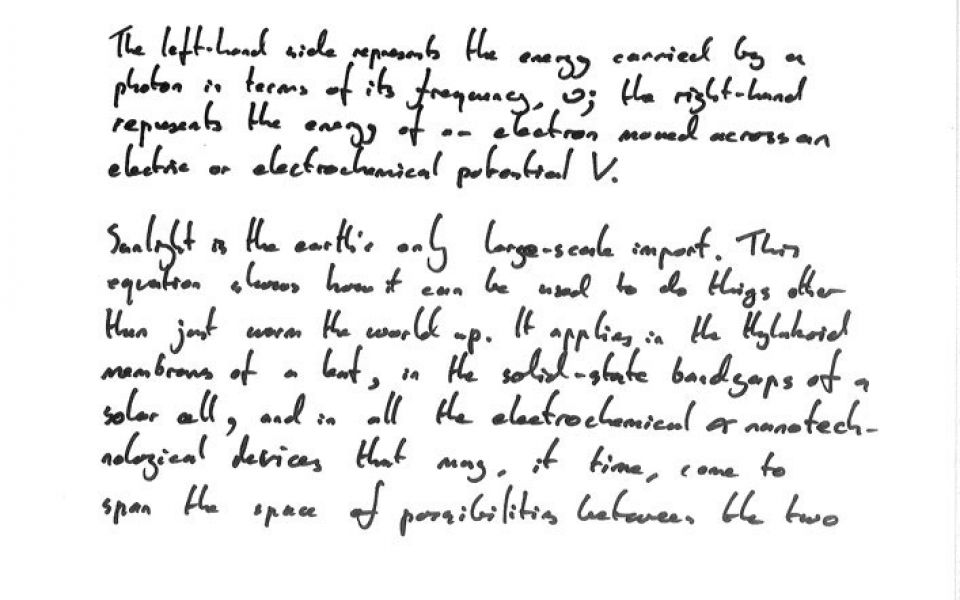 The left-hand side represents the energy carried by a
photon in terms of its frequency, υ; the right-hand
represents the energy of an electron moved across an
electric or electrochemical potential V.
Sunlight is the earth's only large-scale import. This
equation shows how it can be used to do things other
than just warm the world up. It applies in the thylakoid
membranes of a leaf, in the solid-state bandgaps of a
solar cell, and in all the electrochemical or nanotech-
nological devices that may, in time, come to
span the space of possibilities between the two